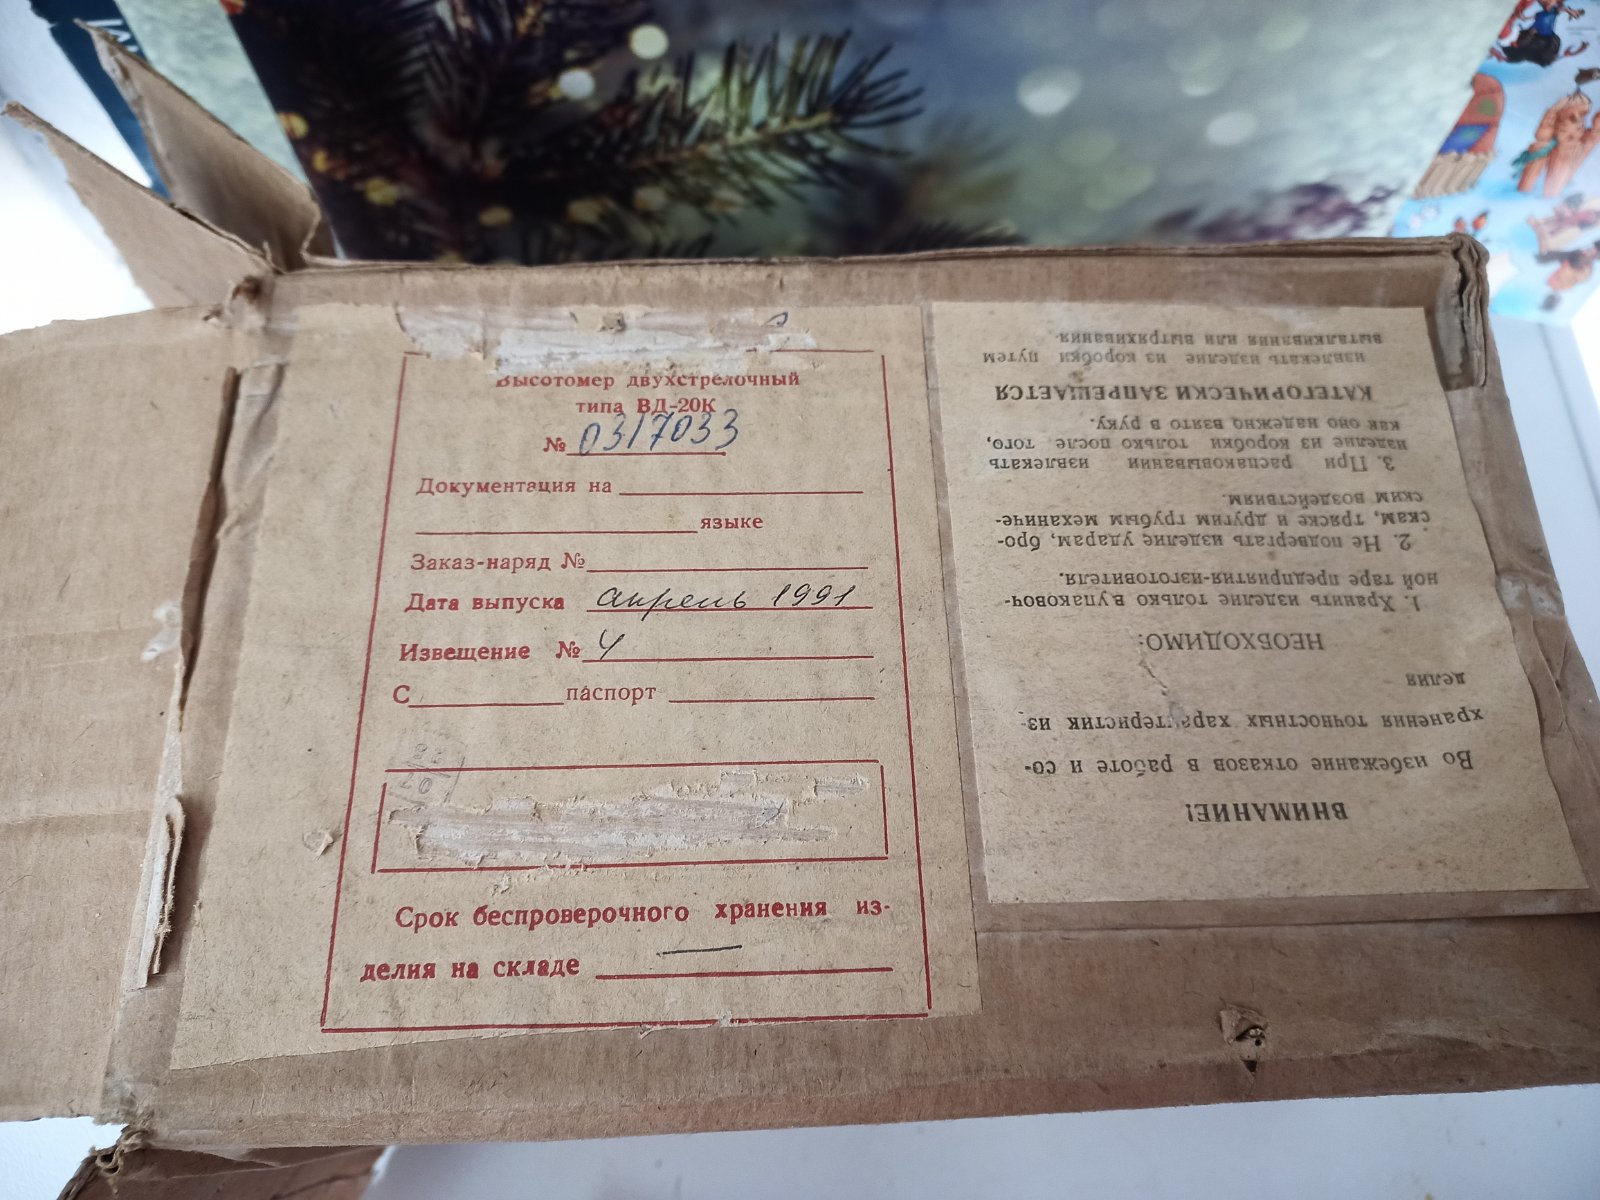 Высотомер двухстрелочный
типа ВД-20К
№ 0317033
Документация на
языке
Заказ-наряд №
Дата выпуска апрель 1991
Извещение № 4
С паспорт
Срок беспроверочного хранения из-
делия на складе —
ВНИМАНИЕ!
Во избежание отказов в работе и со-
хранения точностных характеристик из-
делия
НЕОБХОДИМО:
1. Хранить изделие только в упаковоч-
ной таре предприятия-изготовителя.
2. Не подвергать изделие ударам, бро-
скам, тряске и другим грубым механиче-
ским воздействиям.
3. При распаковывании извлекать
изделие из коробки только после того,
как оно надежно взято в руку.
КАТЕГОРИЧЕСКИ ЗАПРЕЩАЕТСЯ
извлекать изделие из коробки путем
выталкивания или вытряхивания.